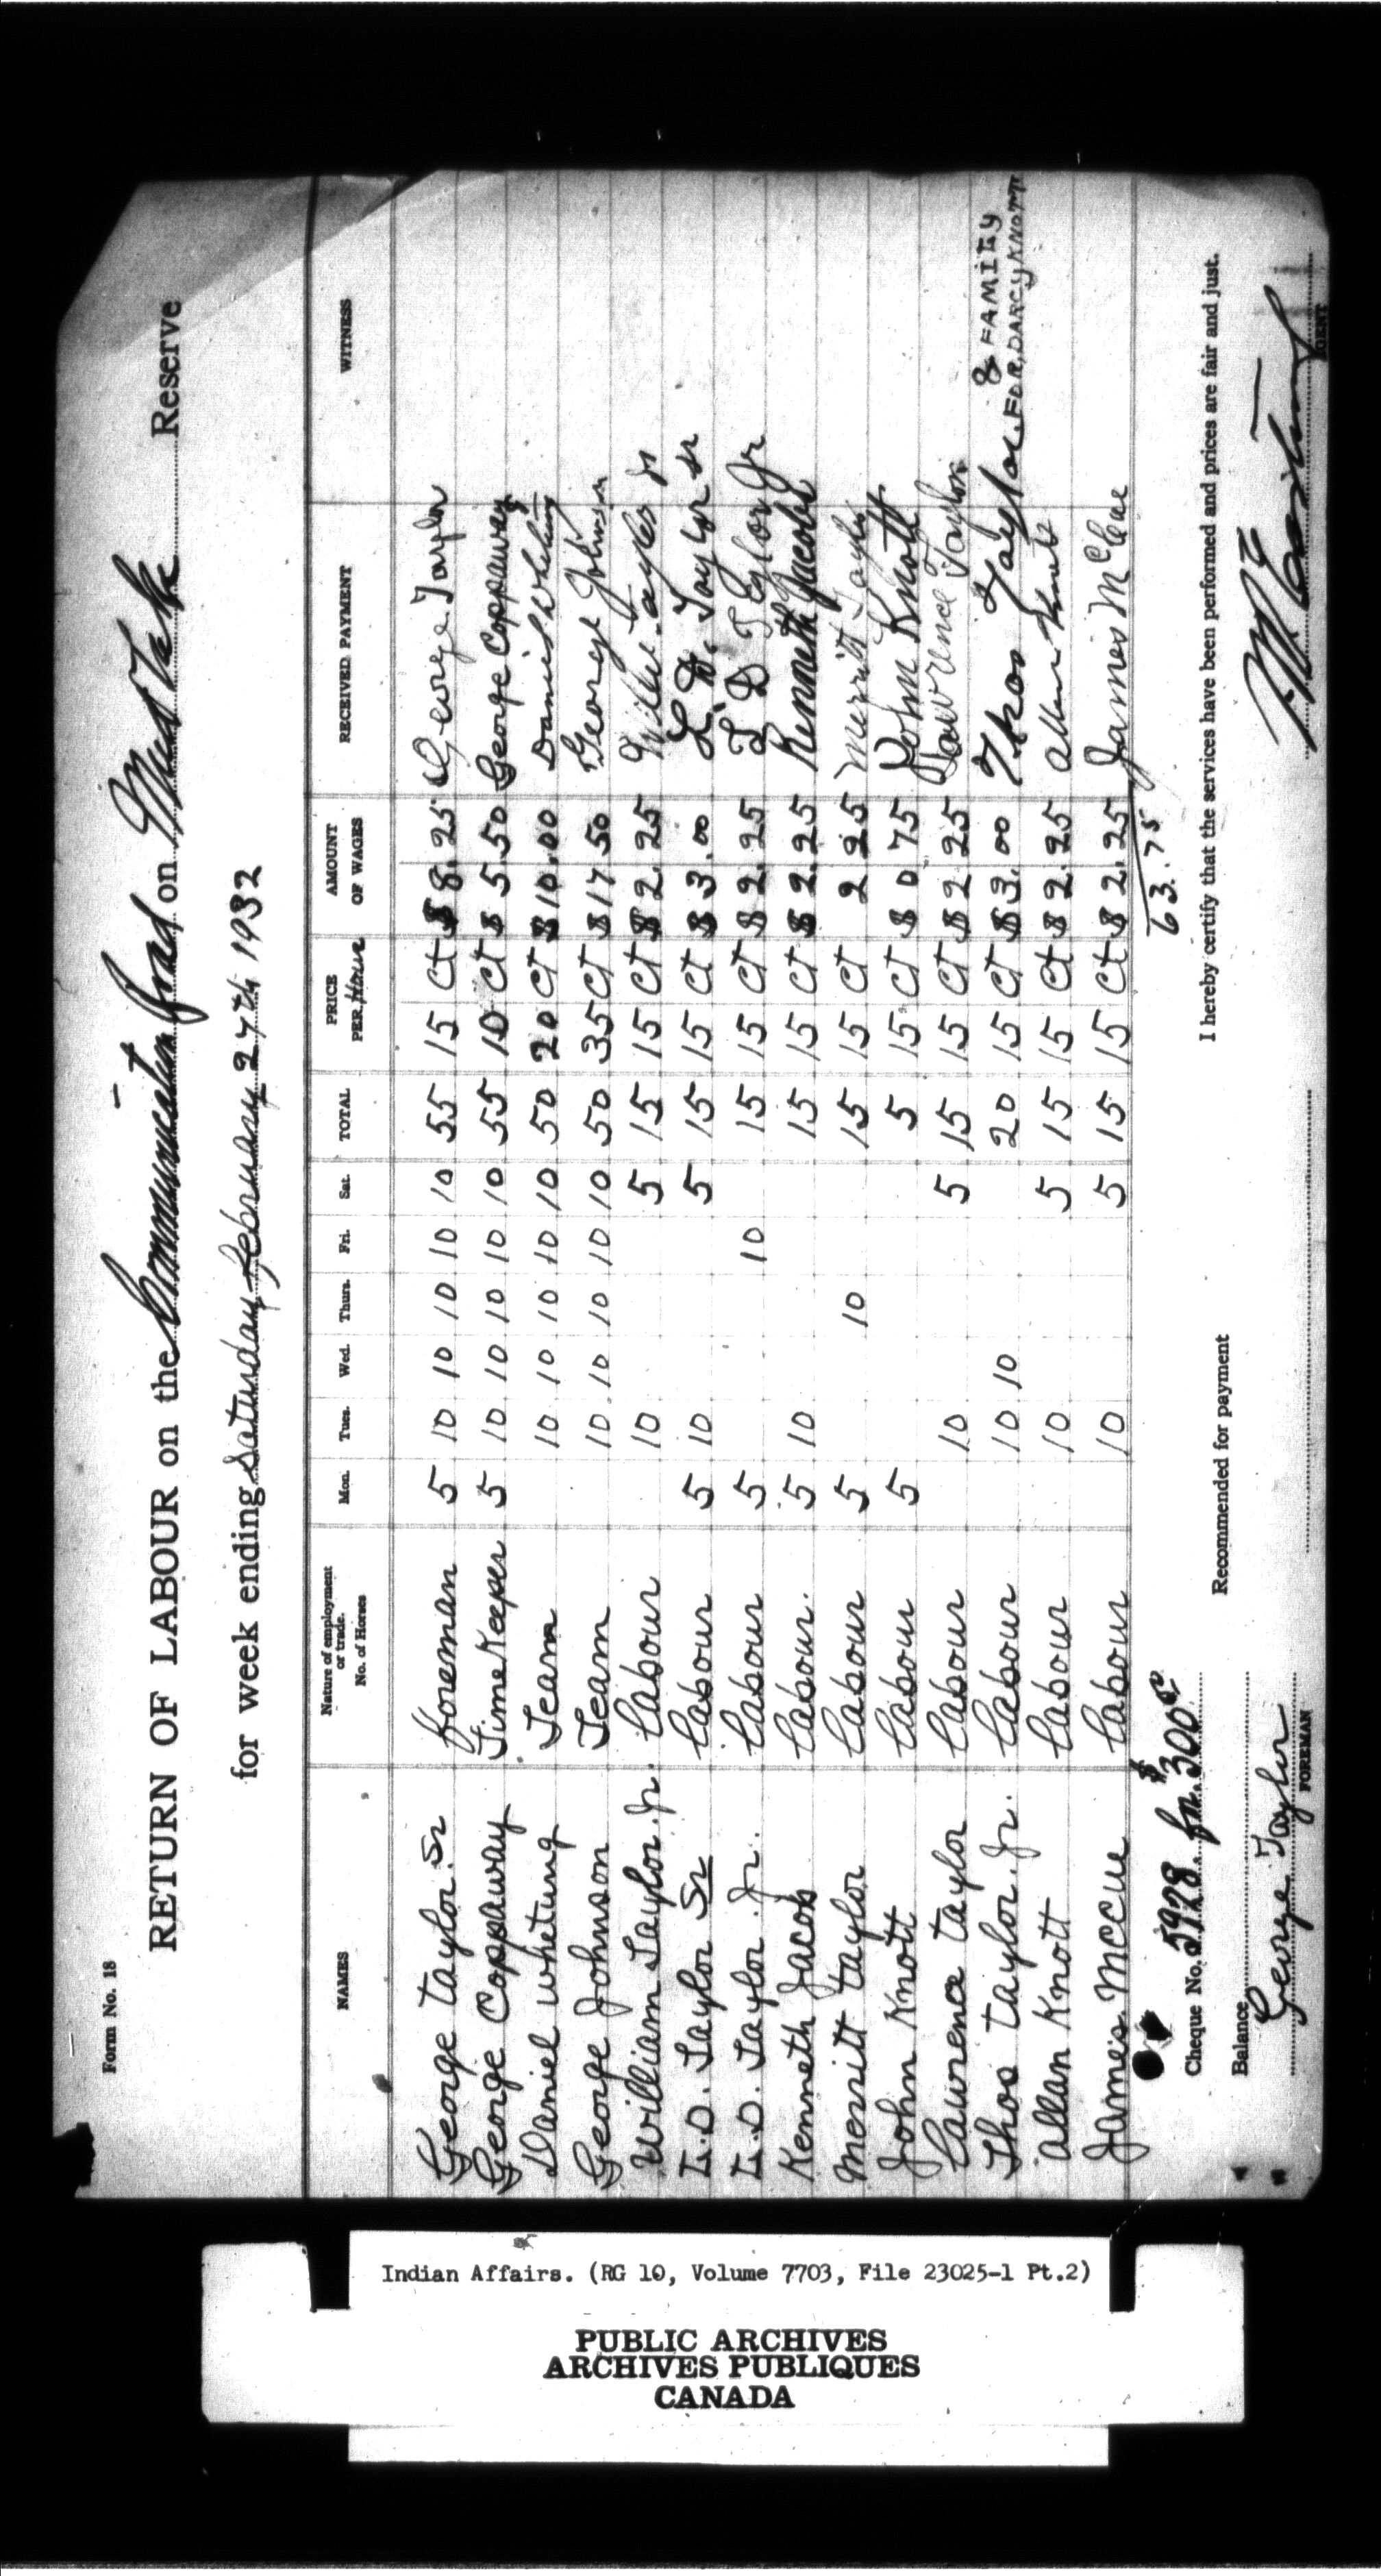 Form No. 18
RETURN OF LABOUR on the Commutation Road on Mud Lake Reserve
for week ending Saturday February 27th 1932
NAMES Nature of employment or trade. No. of Horses Mon. Tues. Wed. Thurs. Fri. Sat. TOTAL PRICE PER Hour AMOUNT OF WAGES RECEIVED PAYMENT WITNESS
George Taylor Sr foreman 5 10 10 10 10 10 55 15 Ct $8.25 George Taylor
George Coppaway Time Keeper 5 10 10 10 10 10 55 10 Ct $5.50 George Coppaway
Daniel Whetung Team 10 10 10 10 10 50 20 Ct $10.00 Daniel Whetung
George Johnson Team 10 10 10 10 10 50 35 Ct $17.50 George Johnson
William Taylor Jr. Labour 10 5 15 15 Ct $2.25 Willie Taylor Jr
L.D. Taylor Sr Labour 5 10 5 15 15 Ct $3.00 L.D. Taylor Sr
L.D. Taylor Jr. Labour 5 10 15 15 Ct $2.25 L D Taylor Jr
Kenneth Jacob Labour. 5 10 15 15 Ct $2.25 Kenneth Jacobs
Merritt Taylor Labour 5 10 15 15 Ct 2 25 Merritt Taylor
John Knott Labour 5 5 15 Ct $0 75 John Knott
Lawrence Taylor Labour 10 5 15 15 Ct $2 25 Lawrence Taylor
Thos Taylor Jr. Labour 10 10 20 15 Ct $3.00 Thos Taylor & FAMILY FOR, DARCY KNOTT
Allan Knott Labour 10 5 15 15 Ct $2.25 Allan Knott
James McCue Labour 10 5 15 15 Ct $2.25 James McCue
63.75
Cheque No. 5928 for $300
I hereby certify that the services have been performed and prices are fair and just.
Recommended for payment
Balance
George Taylor
FOREMAN
AGENT
Indian Affairs. (RG 10, Volume 7703, File 23025-1 Pt.2)
PUBLIC ARCHIVES
ARCHIVES PUBLIQUES
CANADA